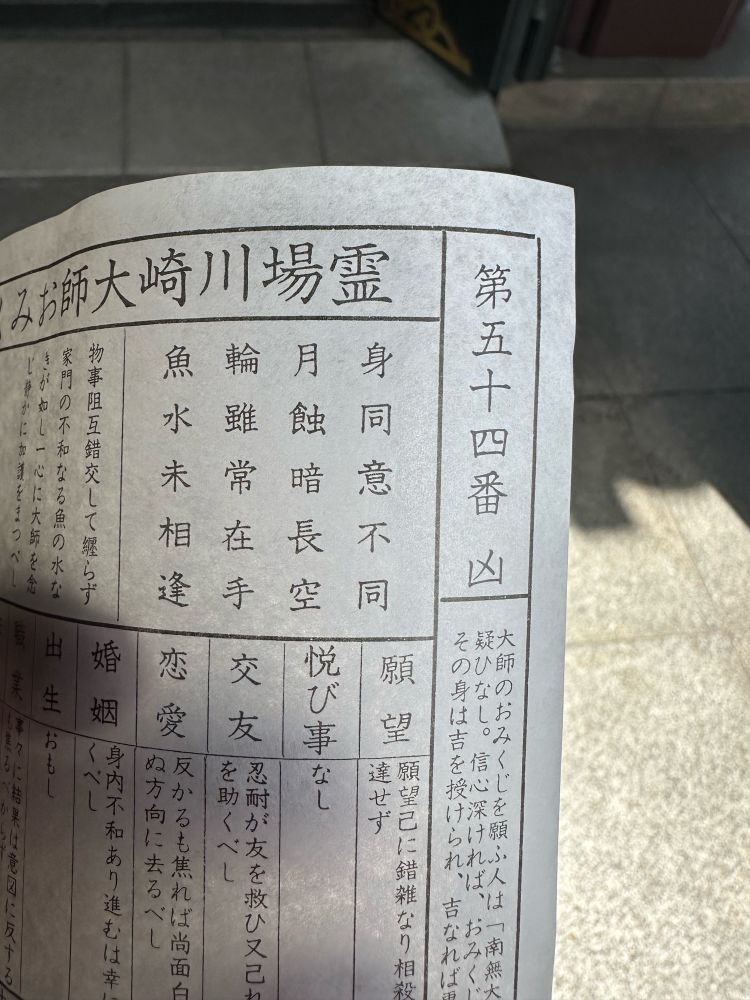 第五十四番 凶
大師のおみくじを願ふ人は「南無大
疑ひなし。信心深ければ、おみくじ
その身は吉を授けられ、吉なれば
霊場川崎大師おみ
身同意不同
月蝕暗長空
輪雖常在手
魚水未相逢
物事阻互錯交して纏らず
家門の不和なる魚の水な
きが如し一心に大師を念
じ静かに加護をまつべし
願望
願望己に錯雑なり相殺
達せず
悦び事
なし
交友
忍耐が友を救ひ又己れ
を助くべし
恋愛
反かるも焦れば尚面白
ぬ方向に去るべし
婚姻
身内不和あり進むは幸に
くべし
出生
おもし
職業
事々に結果は意図に反する
も焦るべからず